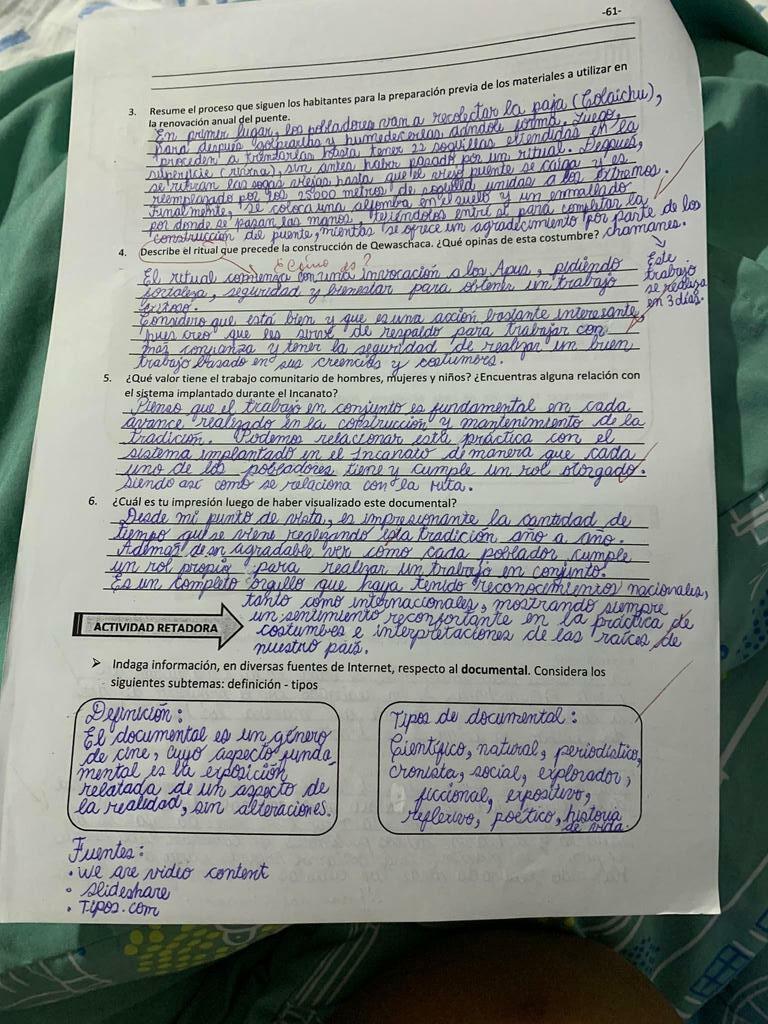 -61-
3. Resume el proceso que siguen los habitantes para la preparación previa de los materiales a utilizar en
la renovación anual del puente.
En primer lugar, los pobladores van a recolectar la paja (Colaichu),
para después golpearlas y humedecerlas dándole forma. Luego,
proceden a trenzarlas hasta tener 22 soguillas extendidas en la
superficie, sin antes haber pasado por un ritual. Después,
se retiran las sogas viejas hasta que el viejo puente se caiga y es
reemplazado por los 25000 metros de soguilla unidas a los extremos.
Finalmente, se coloca una alfombra en el suelo y un enmallado
por donde se pasan las manos, tejiéndolos entre sí para completar la
construcción del puente, mientras se ofrece un agradecimiento por parte de los
chamanes.
Este
trabajo
se realiza
en 3 días.
4. Describe el ritual que precede la construcción de Qewaschaca. ¿Qué opinas de esta costumbre?
¿Cómo es?
El ritual comienza con una invocación a los Apus, pidiendo
fortaleza, seguridad y bienestar para obtener un trabajo
exitoso.
Considero que está bien y que es una acción bastante interesante,
pues creo que les sirve de respaldo para trabajar con
más confianza y tener la seguridad de realizar un buen
trabajo basado en sus creencias y costumbres.
5. ¿Qué valor tiene el trabajo comunitario de hombres, mujeres y niños? ¿Encuentras alguna relación con
el sistema implantado durante el Incanato?
Pienso que el trabajo en conjunto es fundamental en cada
avance realizado en la construcción y mantenimiento de la
tradición. Podemos relacionar esta práctica con el
sistema implantado en el Incanato de manera que cada
uno de los pobladores tiene y cumple un rol otorgado.
Siendo así como se relaciona con la mita.
6. ¿Cuál es tu impresión luego de haber visualizado este documental?
Desde mi punto de vista, es impresionante la cantidad de
tiempo que se viene realizando esta tradición año a año.
Además de ser agradable ver cómo cada poblador cumple
un rol propio para realizar un trabajo en conjunto.
Es un completo orgullo que haya tenido reconocimientos nacionales,
tanto como internacionales, mostrando siempre
un sentimiento reconfortante en la práctica de
costumbres e interpretaciones de las raíces de
nuestro país.
ACTIVIDAD RETADORA
➤ Indaga información, en diversas fuentes de Internet, respecto al documental. Considera los
siguientes subtemas: definición - tipos
Definición:
El documental es un género
de cine, cuyo aspecto funda-
mental es la exposición
relatada de un aspecto de
la realidad, sin alteraciones.
Tipos de documental:
Científico, natural, periodístico,
cronista, social, explorador,
ficcional, expositivo,
reflexivo, poético, historia
de vida.
Fuentes:
• We are video content
• Slideshare
• Tipos.com